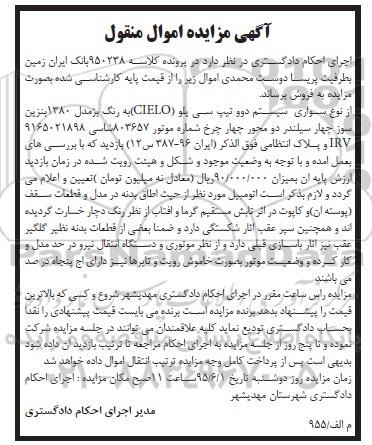 آگهی مزایده اموال منقول
اجرای احکام دادگستری در نظر دارد در پرونده کلاسه ۹۵۰۲۳۸بانک ایران زمین
بطرفیت پریسا دوست محمدی اموال زیر را از قیمت پایه کارشناسی شده بصورت
مزایده به فروش برساند.
از نوع سواری سیستم دوو تیپ سی یلو (CIELO)به رنگ بژمدل ۱۳۸۰بنزین
سوز چهار سیلندر دو محور چهار چرخ شماره موتور ۸۰۳۶۵۷شاسی ۹۱۶۵۰۲۱۸۹۸
IRV و پلاک انتظامی فوق الذکر (ایران ۹۶-۳۸۷ س۱۲) بازدید که با بررسی های
بعمل امده و با توجه به وضعیت موجود و شکل و هیئت رویت شده در زمان بازدید
ارزش پایه ان بمیزان ۹۰/۰۰۰/۰۰۰ریال (معادل نه میلیون تومان )تعیین و اعلام می
گردد و لازم بذکر است اتومبیل مورد نظر از حیث اطاق بدنه در مدل و قطعات سقف
(پوسته ان)و کاپوت در اثر تابش مستقیم گرما و افتاب از نظر رنگ دچار خسارت گردیده
اند و همچنین سپر عقب اثار شکستگی دارد و ضمنا بعضی از قطعات بدنه نظیر گلگیر
عقب نیز اثار باسازی قبلی دارد و از نظر موتوری و دستگاه انتقال نیرو در حد مدل و
کار کرده و وضعیت موتور بصورت خاموش رویت و تایرها نیز دارای اج پنجاه در صد
می باشند
مزایده راس ساعت مقرر در اجرای احکام دادگستری مهدیشهر شروع و کسی که بالاترین
قیمت را پیشنهاد بدهد برنده مزایده است برنده می بایست قیمت پیشنهادی را نقدا
بحساب دادگستری تودیع نماید کلیه علاقمندان می توانند در جلسه مزایده شرکت
نموده و تا پنج روز از جلسه مزایده به اجرای احکام مراجعه تا ترتیب بازدید ان داده شود
بدیهی است پس از پرداخت کامل وجه مزایده ترتیب انتقال اموال داده خواهد شد
زمان مزایده روز دوشنبه تاریخ ۹۵/۶/۱ساعت ۱۱صبح مکان مزایده : اجرای احکام
دادگستری شهرستان مهدیشهر
مدیر اجرای احکام دادگستری
م الف/۹۵۵